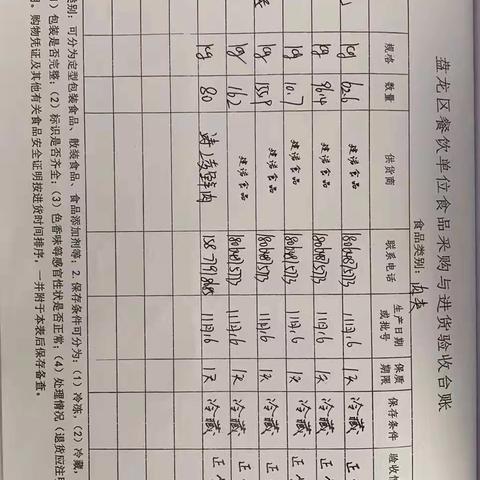 盘龙区餐饮单位食品采购与进货验收台账
食品类别:肉类
规格 数量 供货商 联系电话 生产日期或批号 保质期限 保存条件 验收
kg 62.6 建洁食品 11月6 1天 冷藏 正
kg 96.4 建洁食品 11月6 1天 冷藏 正
kg 10.7 建洁食品 11月6 1天 冷藏
kg 155.9 建洁食品 11月6 1天 冷藏 正
kg 162 建洁食品 11月6 1天 冷藏 正
kg 80 鲜肉 11月6 1天 冷藏 正
类别:可分为定型包装食品、散装食品、食品添加剂等;2.保存条件可分为:(1)冷冻,(2)冷藏,
)包装是否完整;(2)标识是否齐全;(3)色香味等感官性状是否正常;(4)处理情况(退货应注明
购物凭证及其他有关食品安全证明按进货时间排序,一并附于本表后保存备查。